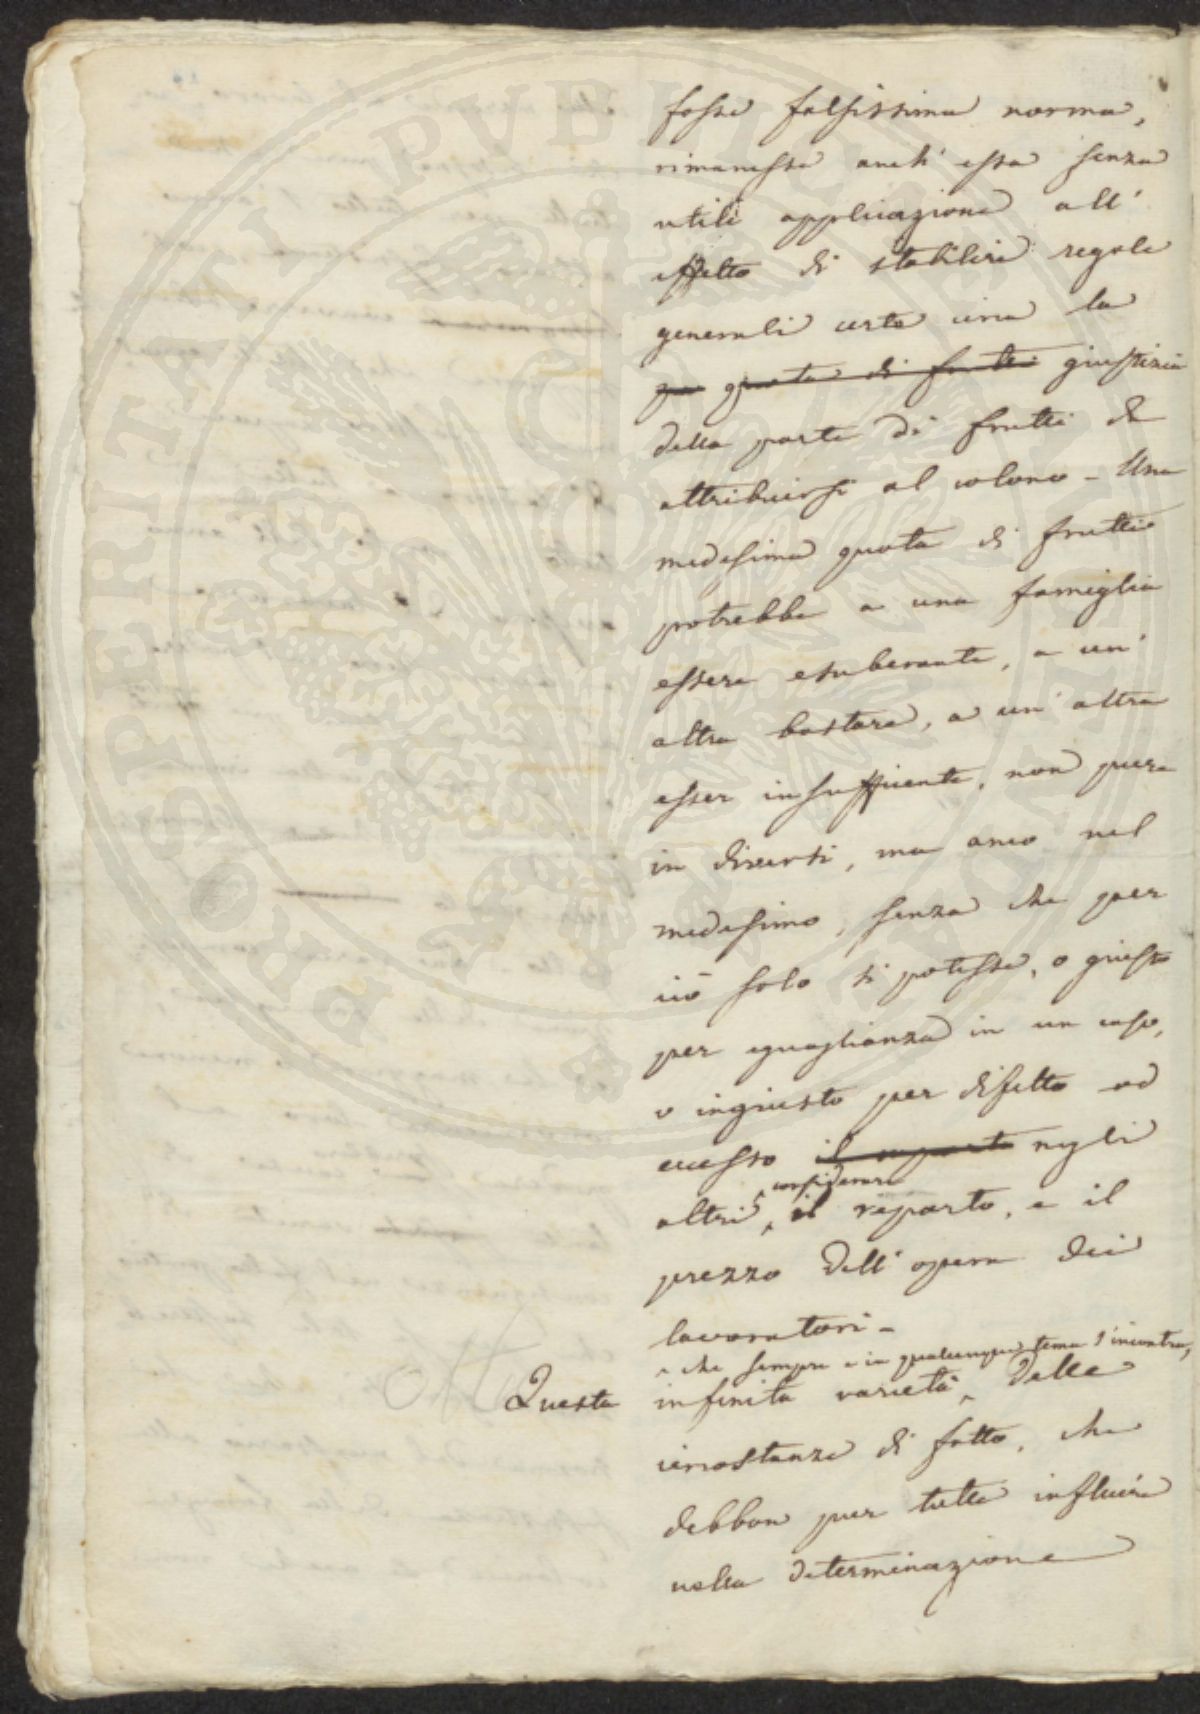 fosse falsissima norma,
rimanesse anch' essa senza
utile applicazione all'
effetto di stabilire regole
generali certe circa la
quota di frutti giustizia
della parte di frutti da
attribuirsi al colono - Una
medesima quota di frutti
potrebbe a una famiglia
essere esuberante, a un'
altra bastare, a un' altra
esser insufficiente, non pure
in diversi, ma anco nel
medesimo, senza che per
ciò solo si potesse, o giusto
per eguaglianza in un caso,
o ingiusto per difetto od
eccesso il reparto negli
considerare
altri, il reparto, e il
prezzo dell' opera dei
lavoratori -
che sempre e in qualunque tema s'incontra,
Questa infinita varietà, delle
circostanze di fatto, che
debbon pur tutte influire
nella determinazione
PROSPERITATI PVBLICAE